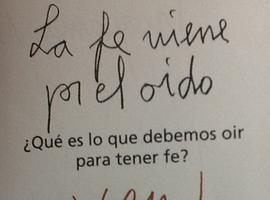 La fe viene
pr el oido
¿Qué es lo que debemos oir
para tener fe?